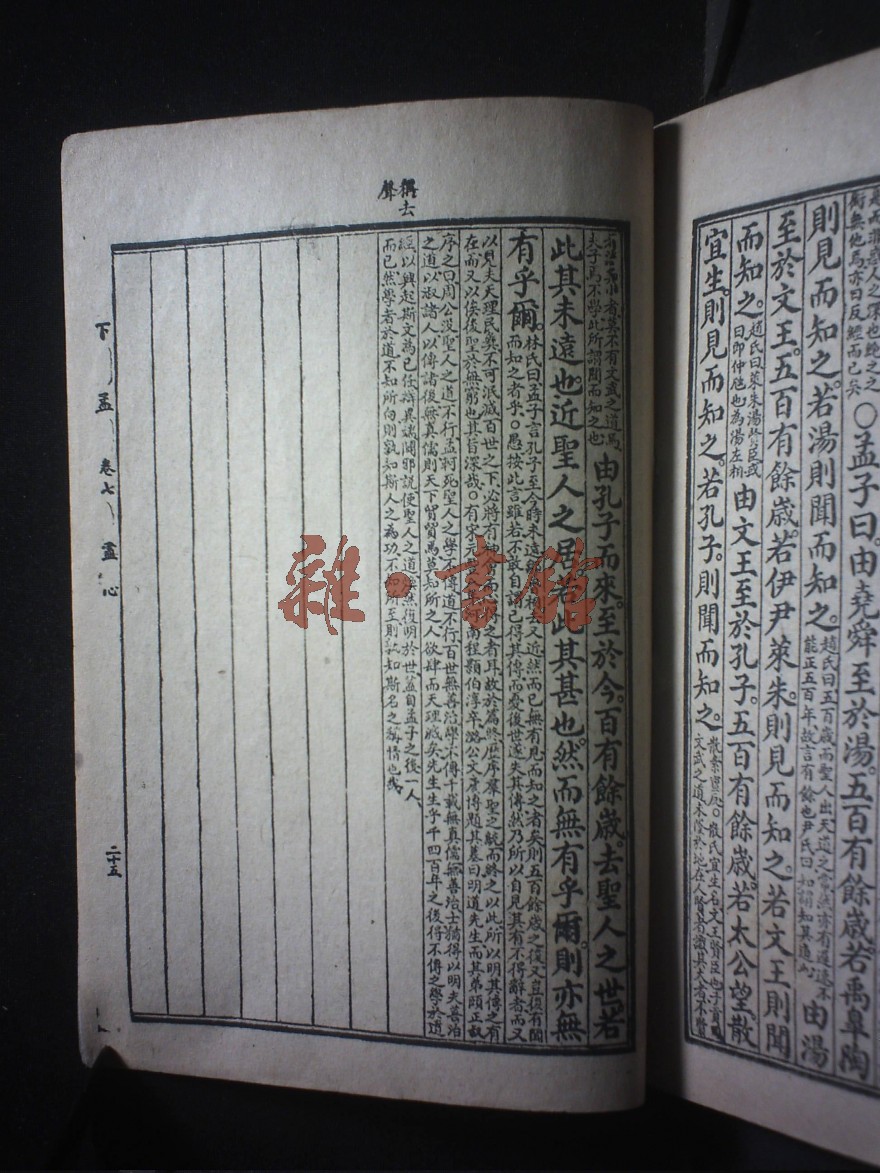 ○孟子曰由堯舜至於湯五百有餘歲若禹皋陶
則見而知之若湯則聞而知之
趙氏曰五百歲而聖人出天道之常然亦有遲速不
能正五百年故言有餘也尹氏曰知謂知其道也
由湯
至於文王五百有餘歲若伊尹萊朱則見而知之若文王則聞
而知之
趙氏曰萊朱湯賢臣或
曰即仲虺也為湯左相
由文王至於孔子五百有餘歲若太公望散
宜生則見而知之若孔子則聞而知之
文武之道未墜於地在人賢者識其大者不賢
夫子焉不學此所謂聞而知之也
由孔子而來至於今百有餘歲去聖人之世若
此其未遠也近聖人之居若此其甚也然而無有乎爾則亦無
有乎爾
林氏曰孟子言孔子至今時未遠
而知之者乎○愚按此言雖若不敢自謂已得其傳而憂後世遂失其傳然乃所以自見其有不得辭者而又
以見夫天理民彝不可泯滅百世之下必將有
者耳故於篇終歷序羣聖之統而終之以此所以明其傳之有
在而又以俟後聖於無窮也其旨深哉○有宋元豐
南程顥伯淳卒潞公文彥博題其墓曰明道先生而其弟頤正叔
序之曰周公沒聖人之道不行孟軻死聖人之學不傳道不行百世無善治學不傳千載無真儒無善治士猶得以明夫善治
之道以淑諸人以傳諸後無真儒則天下貿貿焉莫知所之人欲肆而天理滅矣先生生乎千四百年之後得不傳之學於遺
經以興起斯文為己任辨異端闢邪說使聖人之道煥然復明於世蓋自孟子之後一人
而已然學者於道不知所向則孰知斯人之為功不知所至則孰知斯名之稱情也哉
稱去
聲
下孟 卷七 盡心
二十五
雜·書館